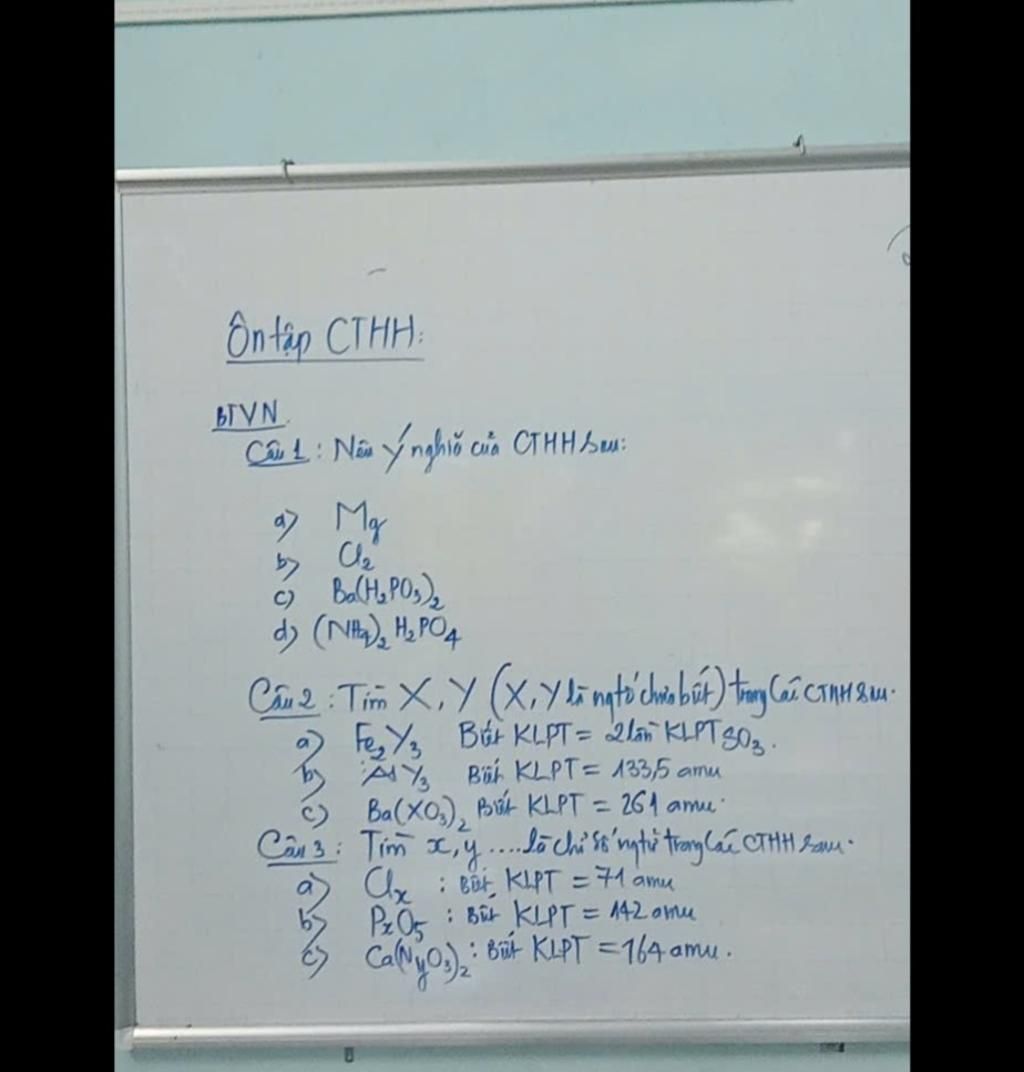 Ôn tập CTHH:
BTVN
Câu 1: Nêu ý nghĩa của CTHH sau:
a) Mg
b) Cl₂
c) Ba(H₂PO₃)₂
d) (NH₄)₂H₂PO₄
Câu 2: Tìm X, Y (X, Y là ngtố chưa biết) trong các CTHH sau.
a) Fe₂Y₃ Biết KLPT = 2 lần KLPT SO₃.
b) AlY₃ Biết KLPT = 133,5 amu
c) Ba(XO₃)₂ Biết KLPT = 261 amu.
Câu 3: Tìm x, y .... là chỉ số ngtử trong các CTHH sau.
a) Clₓ : Biết KLPT = 71 amu
b) PₓO₅ : Biết KLPT = 142 amu
c) Ca(NyO₃)₂ : Biết KLPT = 164 amu.